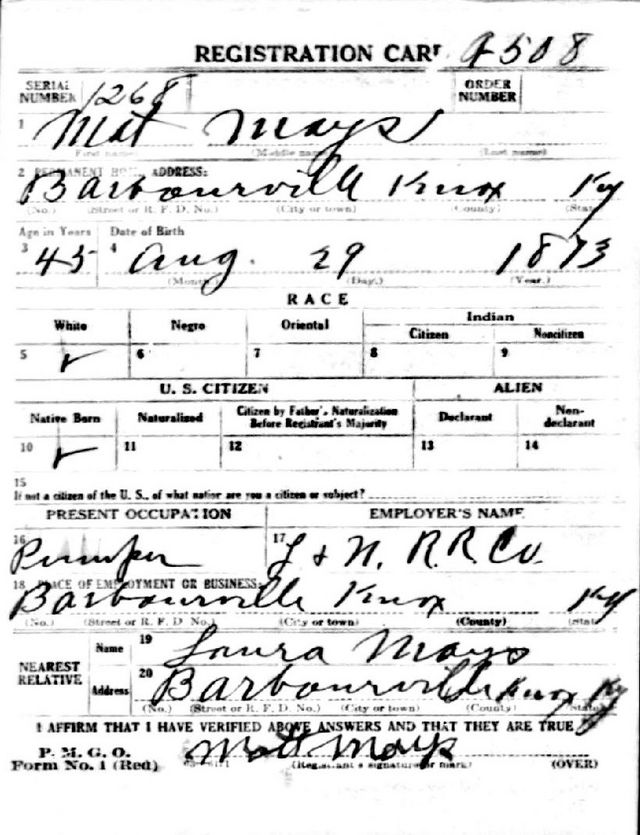 REGISTRATION CARD 9508
SERIAL NUMBER 1268 ORDER NUMBER
1 Mat Mays
(First name) (Middle name) (Last name)
2 PERMANENT HOME ADDRESS:
Barbourville Knox Ky
(No.) (Street or R. F. D. No.) (City or town) (County) (State)
Age in Years Date of Birth
3 45 4 Aug. 29 1873
(Month.) (Day.) (Year.)
RACE
White Negro Oriental Indian
Citizen Noncitizen
5 ✓ 6 7 8 9
U. S. CITIZEN ALIEN
Native Born Naturalized Citizen by Father's Naturalization Before Registrant's Majority Declarant Non-declarant
10 ✓ 11 12 13 14
15
If not a citizen of the U. S., of what nation are you a citizen or subject?
PRESENT OCCUPATION EMPLOYER'S NAME
16 Pumper 17 L & N. R. R. Co.
18 PLACE OF EMPLOYMENT OR BUSINESS:
Barbourville Knox Ky
(No.) (Street or R. F. D. No.) (City or town) (County) (State)
NEAREST RELATIVE Name 19 Laura Mays
Address 20 Barbourville Knox Ky
(No.) (Street or R. F. D. No.) (City or town) (County) (State)
I AFFIRM THAT I HAVE VERIFIED ABOVE ANSWERS AND THAT THEY ARE TRUE
P. M. G. O.
Form No. 1 (Red) Mat Mays
(Registrant's signature or mark) (OVER)